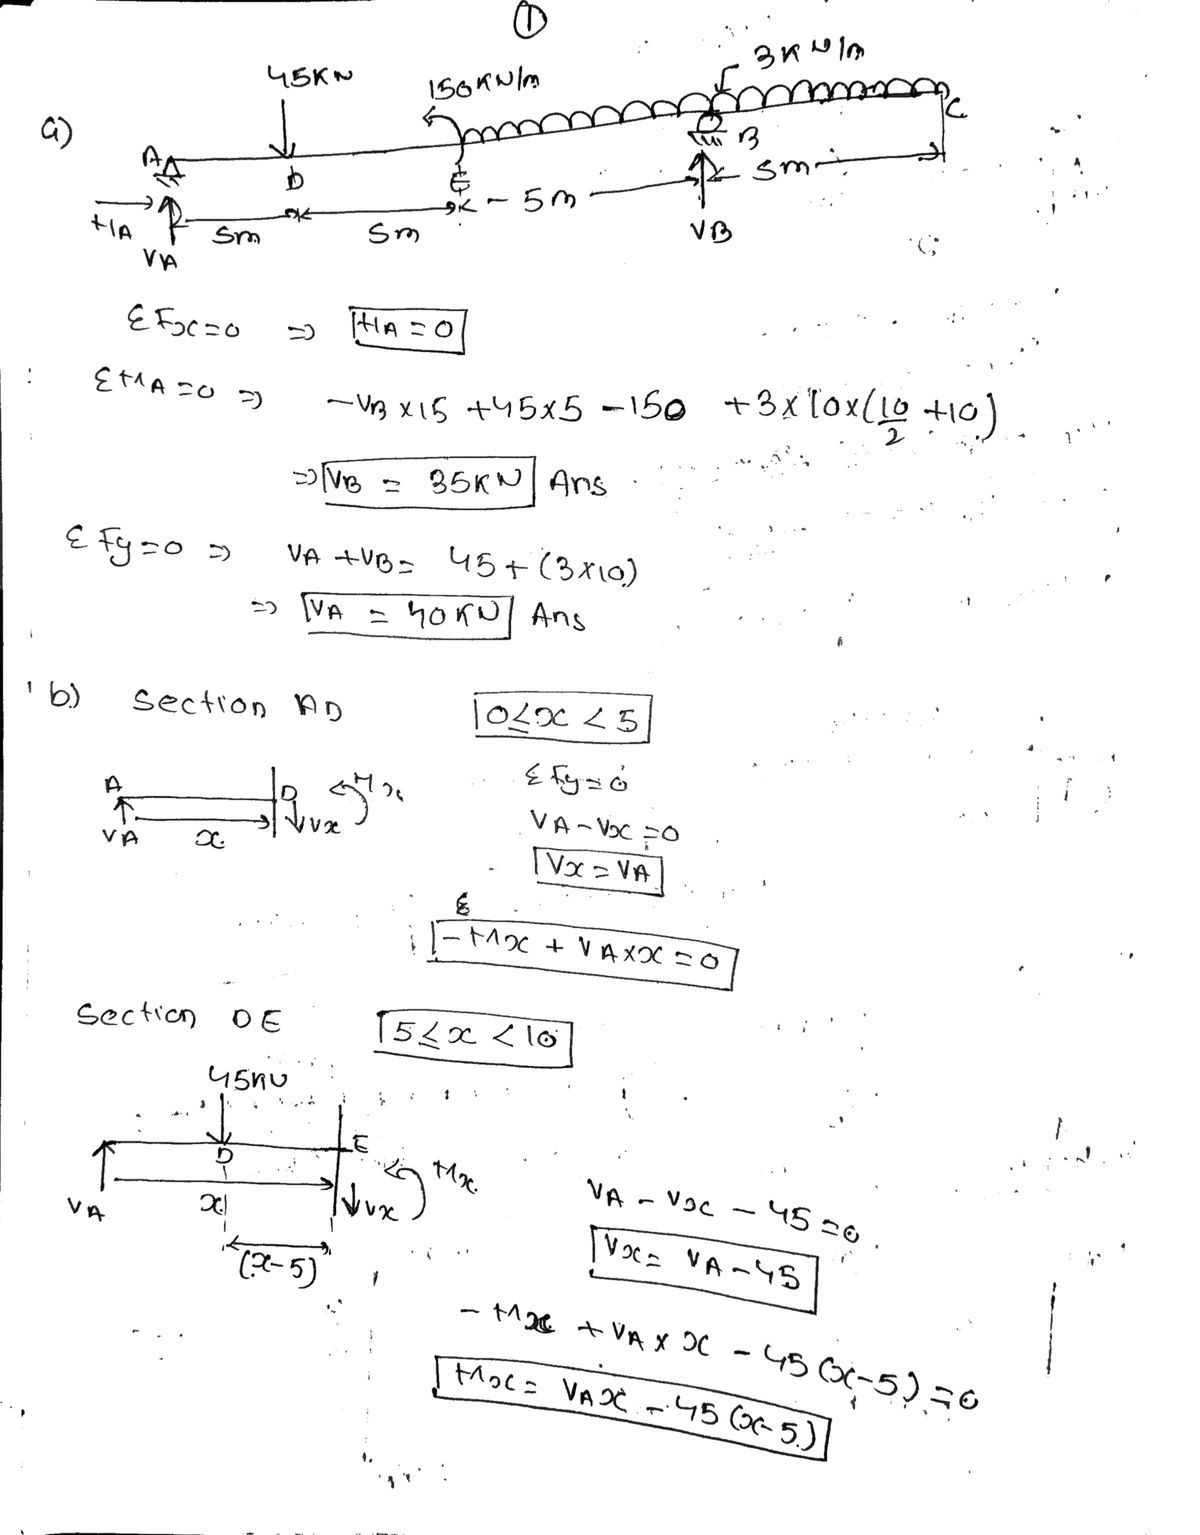 ①
a)
45KN
150KN/m
3KN/m
A
D
E
B
C
HA
VA
5m
5m
5m
5m
VB
ΣFx=0 ⇒ HA=0
ΣMA=0 ⇒ -VB×15 +45×5 -150 +3×10×(10/2 +10)
⇒ VB = 35KN Ans
ΣFy=0 ⇒ VA +VB= 45+(3×10)
⇒ VA = 40KN Ans
b) Section AD 0≤x<5
A
D
Mx
VA
x
Vx
ΣFy=0
VA-Vx=0
Vx=VA
Σ
-Mx + VA×x=0
Section DE 5≤x<10
45KN
D
E
Mx
VA
x
Vx
(x-5)
VA - Vx - 45=0
Vx= VA-45
-Mx + VA×x -45(x-5)=0
Mx= VAx -45(x-5)